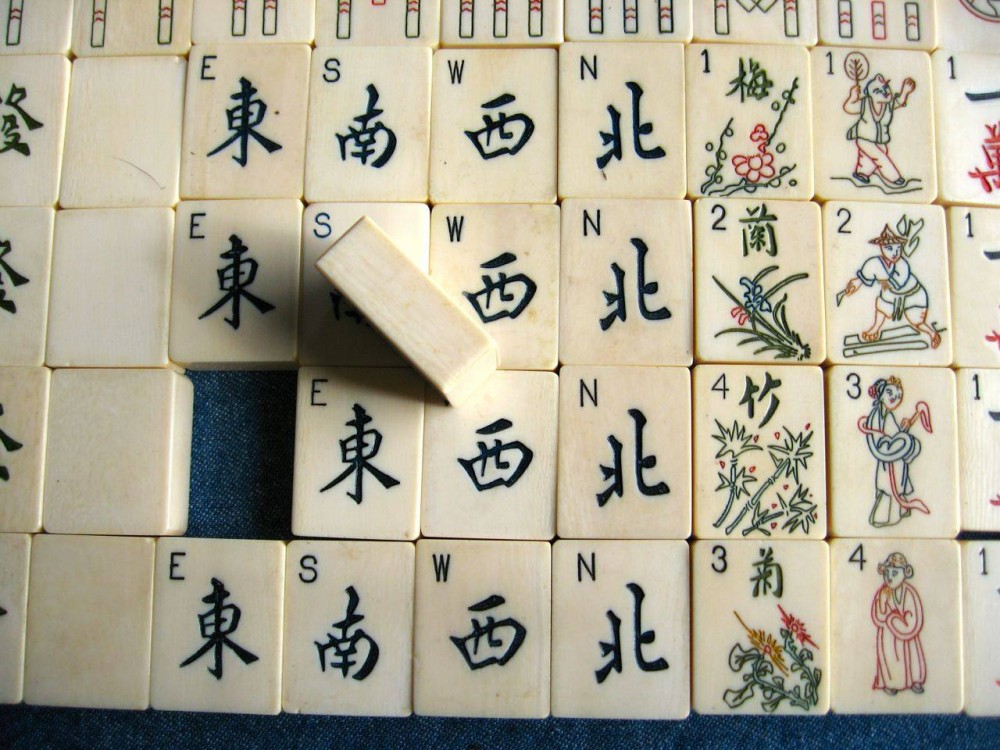 E S W N 1 梅 1 1
發 東 南 西 北 一
萬
E S W N 2 蘭 2 1
發 東 西 北
E N 4 竹 3 1
東 西 北
E S W N 3 菊 4 1
東 南 西 北